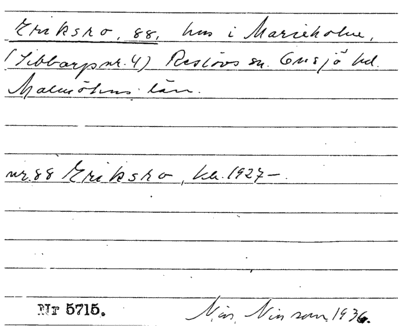 Eriksro, 88, hus i Marieholm,
(Sibbarp nr. 4) Reslövs sn. Onsjö hd.
Malmöhus län.
nr. 88 Eriksro, kb. 1927–.
Nr 5715.
Nils Nilsson, 1936.